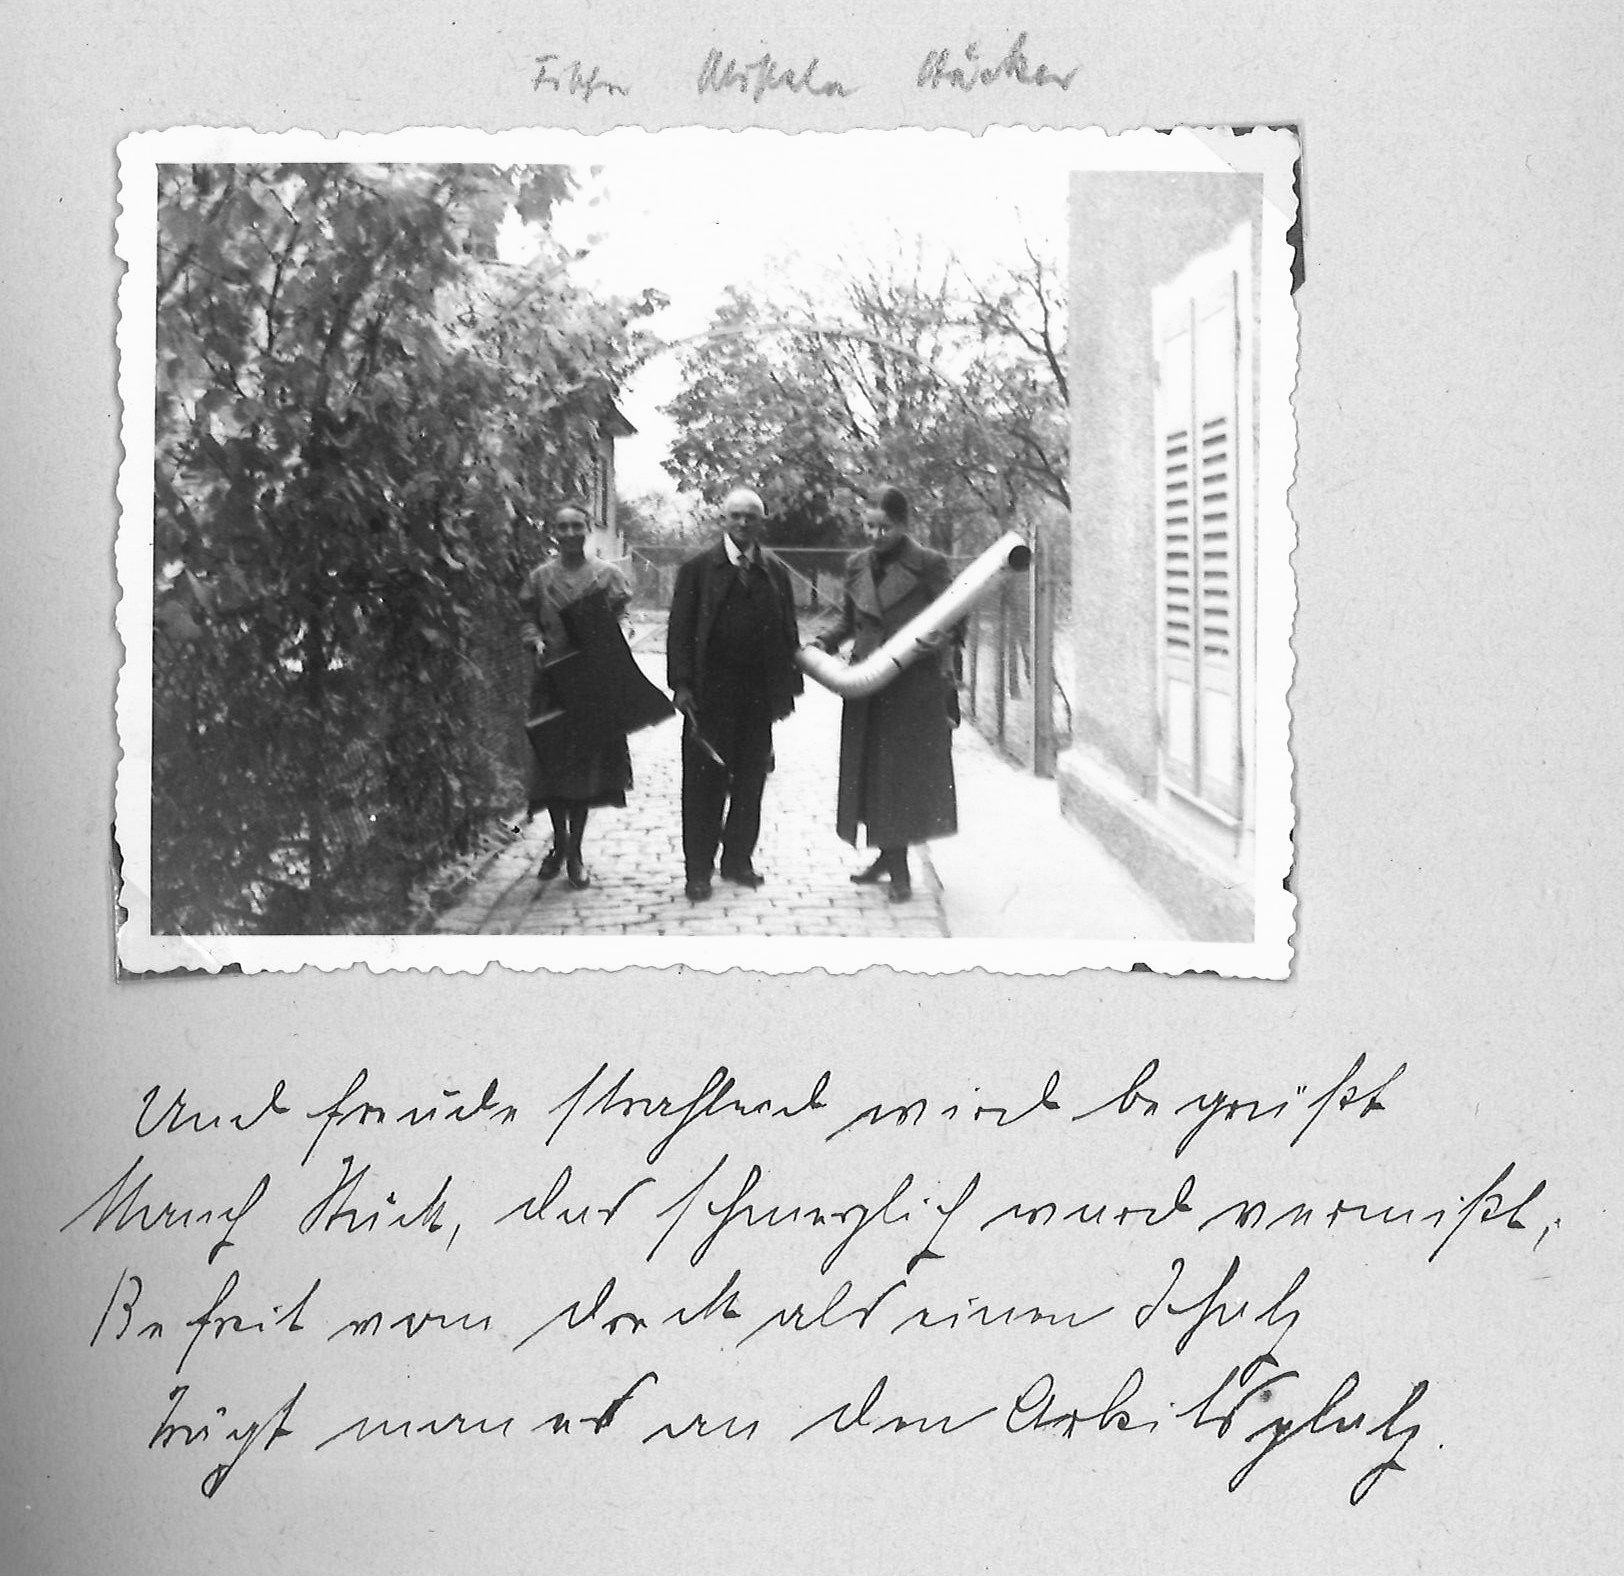 Und freude strahlend wird begrüßt
Manch Stück, das schmerzlich ward vermißt;
Befreit vom Dreck als einen Schatz
Trägt man es an den Arbeitsplatz.